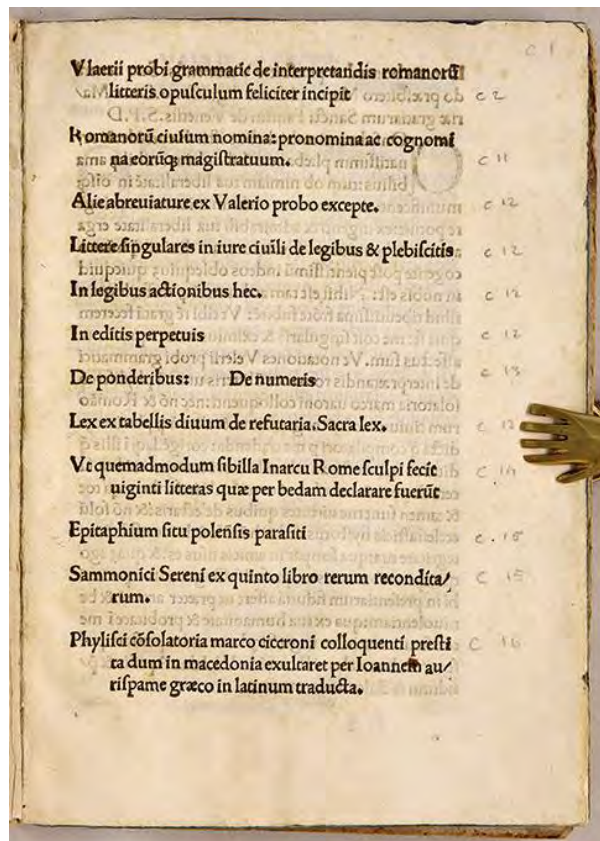 c 1
Vlaerii probi grammatic de interpretandis romanorū
litteris opusculum feliciter incipit c 2
Romanorū ciuium nomina: pronomina ac cognomi
na eorūqꝫ magistratuum. c 11
Alie abreuiature ex Valerio probo excepte. c 12
Littere singulares in iure ciuili de legibus & plebiscitis c 12
In legibus actionibus hec. c 12
In editis perpetuis c 12
De ponderibus: De numeris c 13
Lex ex tabellis diuum de refutaria. Sacra lex. c 13
Vt quemadmodum sibilla Inarcu Rome sculpi fecit c 14
uiginti litteras quæ per bedam declarare fuerūt
Epitaphium situ polensis parasiti c. 15
Sammonici Sereni ex quinto libro rerum recondita/ c 15
rum.
Phylisci cōsolatoria marco ciceroni colloquenti presti c 16
ta dum in macedonia exultaret per Ioannem au/
rispame græco in latinum traducta.